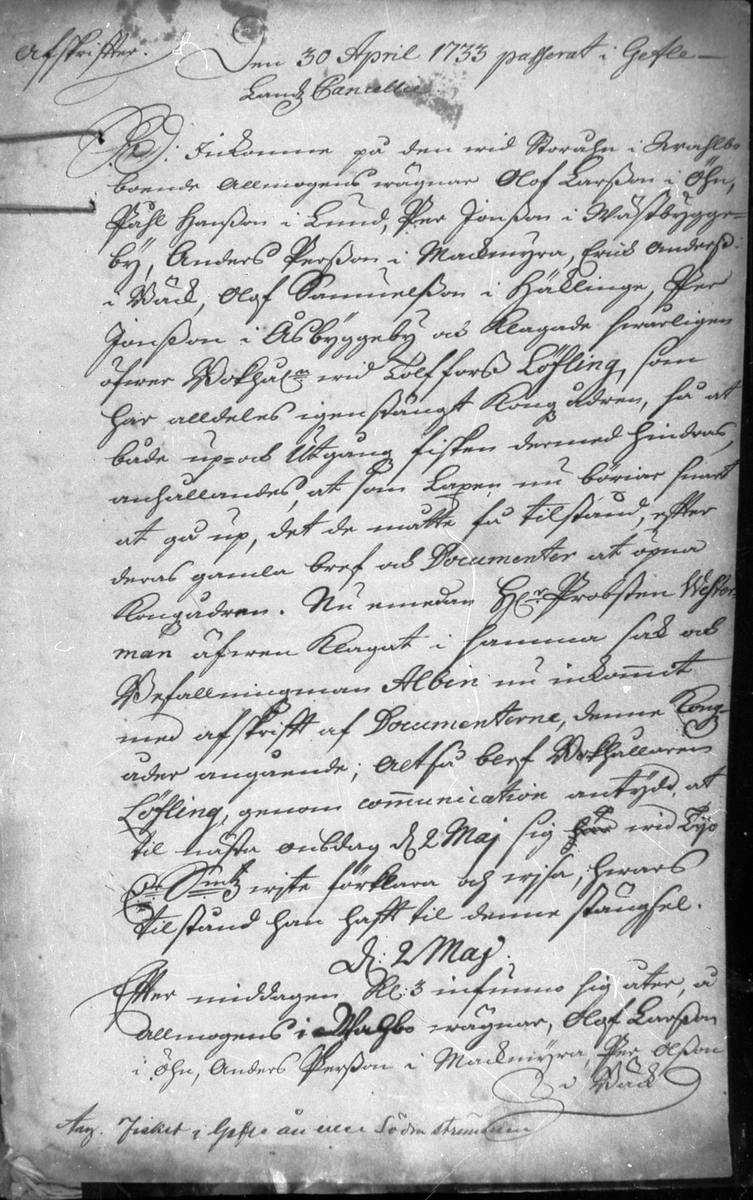 Afskrifter. Den 30 April 1733 passerat i Gefle
Landz Cancelliet
S. D: Inkomme på den wid Storåhn i Wahlbo
boende Allmogens wägnar Olof Larßon i Öhn,
Påhl Hanßon i Lund, Per Jonßon i Wästbygge=
by, Anders Perßon i Mackmyra, Erick Anderß:
i Bäck, Olof Samuelßon i Häcklinge, Per
Jonßon i Åsbyggeby och klagade swårligen
öfwer Bokhål:n wid Tolffors Löfling, som
har alldeles igenstängt Kongsådren, så at
både up= och Utgång fisken dermed hindras,
anhållandes, at som Laxen nu börjar snart
at gå up, det de måtte få tilstånd, efter
deras gamla bref och Documenter at öpna
Kongsådren. Nu emedan H:r Probsten Wester=
man äfwen klagat i samma sak och
Befallningman Albin nu inkommit
med afskrift af Documenterne, denne Kongs=
åder angående; Altså blef Bokhållaren
Löfling, genom communication antydd, at
til nästa onsdag d: 2 Maj sig här wid
wite förklara och wisa, hwars
tilstånd han hafft til denne stängsel.
D: 2 Maj.
Efter middagen Kl: 3 infunno sig åter, å
Allmogens i Wahlbo wägnar, Olof Larßon
i Öhn, Anders Perßon i Mackmyra, Per Olßon
i Bäck
Ang. Fisket i Gefle ån Södra strömmen